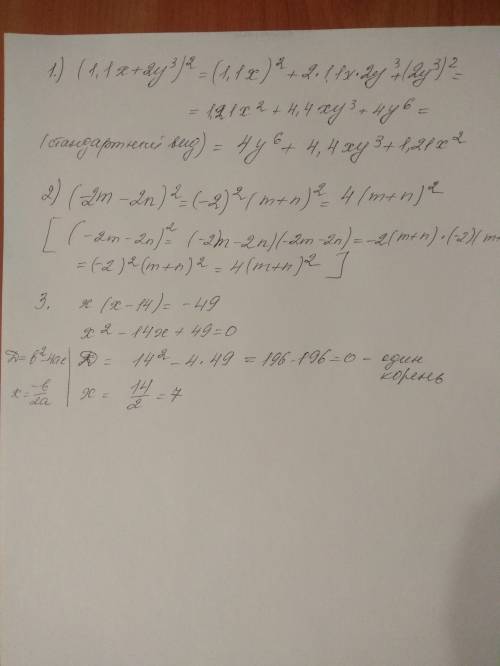 1.) (1,1x+2y³)² = (1,1x)² + 2·1,1x·2y³+(2y³)² =
= 1,21x² + 4,4xy³ + 4y⁶ =
(стандартный вид) = 4y⁶ + 4,4xy³ + 1,21x²
2) (-2m-2n)² = (-2)²(m+n)² = 4(m+n)²
[ (-2m-2n)² = (-2m-2n)(-2m-2n) = -2(m+n)·(-2)(m+
= (-2)²(m+n)² = 4(m+n)² ]
3. x(x-14) = -49
x² - 14x + 49 = 0
D=b²-4ac | D = 14² - 4·49 = 196-196 = 0 - один
корень
x = -b/2a | x = 14/2 = 7